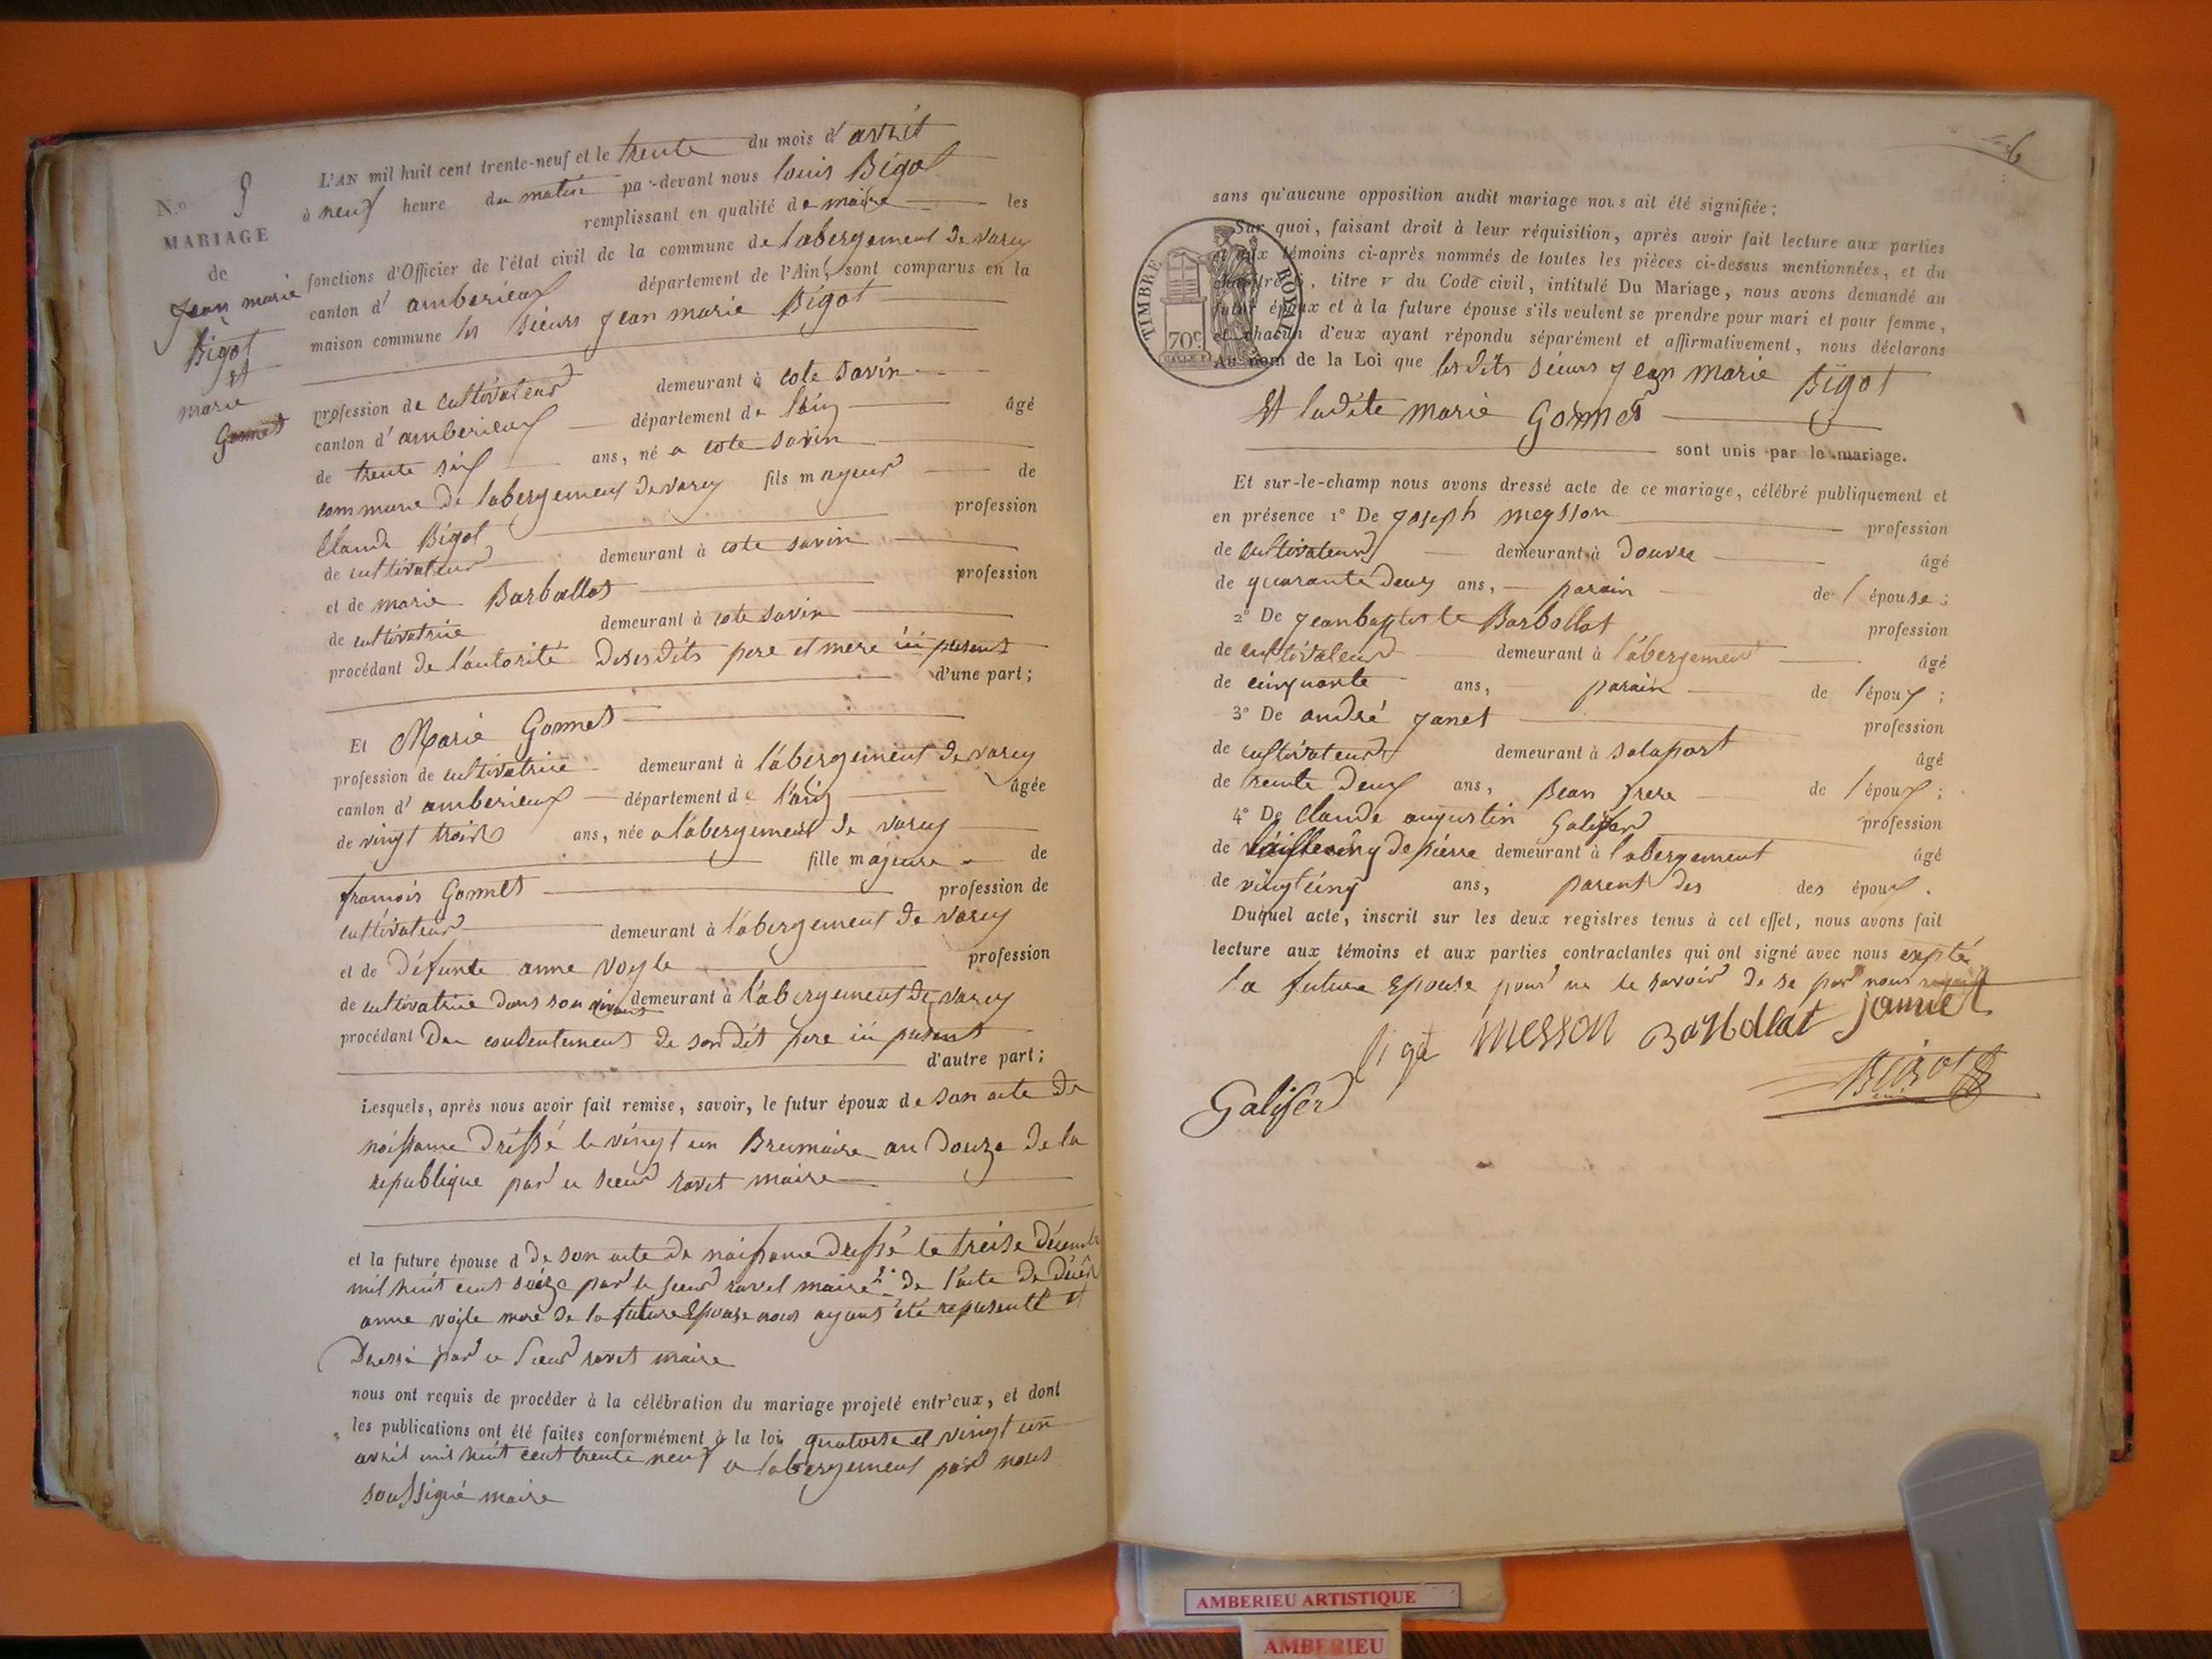 N.o 9
MARIAGE
de
Jean marie
Bigot
et
marie
Gonnet
L'AN mil huit cent trente-neuf et le trente du mois d' avril
à neuf heure du matin par-devant nous louis Bigot
remplissant en qualité de maire les
fonctions d'Officier de l'état civil de la commune de labergement de varey
canton d' amberieux département de l'Ain, sont comparus en la
maison commune les sieurs jean marie Bigot
profession de cultivateur demeurant à cote savin
canton d' amberieux département de l'ain âgé
de trente six ans, né a cote savin
commune de labergement de varey fils mageur de
Claude Bigot profession
de cultivateur demeurant à cote savin
et de marie Barballat profession
de cultivatrice demeurant à cote savin
procédant de l'autorité desesdits pere et mere ici present
d'une part;
Et Marie Gonnet
profession de cultivatrice demeurant à l'abergement de varey
canton d' amberieux département de l'ain âgée
de vingt trois ans, née a l'abergement de varey
fille majeure de
francois Gonnet profession de
cultivateur demeurant à l'abergement de varey
et de défunte anne voyle profession
de cultivatrice dans son vivant demeurant à l'abergement de varey
procédant du contentement de son dit pere ici present
d'autre part;
Lesquels, après nous avoir fait remise, savoir, le futur époux de son acte de
naissance dressé le vingt un Brumaire an douze de la
republique par le sieur ravet maire
et la future épouse d de son acte de naissance dressé le treise décembre
mil huit cent seize par le sieur ravet maire 2° de l'acte de décès
anne voyle mere de la future Epouse nous ayant été represente et
Dressé par le sieur ravet maire
nous ont requis de procéder à la célébration du mariage projeté entr'eux, et dont
les publications ont été faites conformément à la loi quatorse et vingt un
avril mil huit cent trente neuf a labergement par nous
soussigné maire
6
sans qu'aucune opposition audit mariage nous ait été signifiée;
Sur quoi, faisant droit à leur réquisition, après avoir fait lecture aux parties
et aux témoins ci-après nommés de toutes les pièces ci-dessus mentionnées, et du
chapitre 6, titre V du Code civil, intitulé Du Mariage, nous avons demandé au
futur époux et à la future épouse s'ils veulent se prendre pour mari et pour femme,
et chacun d'eux ayant répondu séparément et affirmativement, nous déclarons
Au nom de la Loi que lesdits sieurs jean marie Bigot
Et ladite marie Gonnet
sont unis par le mariage.
TIMBRE ROYAL
70 c.
Et sur-le-champ nous avons dressé acte de ce mariage, célébré publiquement et
en présence 1° De joseph meysson profession
de cultivateur demeurant à douvre âgé
de quarante deux ans, parain de l'épouse;
2° De jean baptiste Barbollat profession
de cultivateur demeurant à l'abergement âgé
de cinquante ans, parain de l'époux;
3° De andré janet profession
de cultivateur demeurant à salaport âgé
de trente deux ans, Beau frere de l'époux;
4° De claude augustin Galifer profession
de de pierre demeurant à l'abergement âgé
de vingt cinq ans, parent des des époux.
Duquel acte, inscrit sur les deux registres tenus à cet effet, nous avons fait
lecture aux témoins et aux parties contractantes qui ont signé avec nous expté
la future Epouse pour ne le savoir de se par nous
Bigot messon Barbollat jannet
Galifer Bigot
AMBERIEU ARTISTIQUE
AMBERIEU